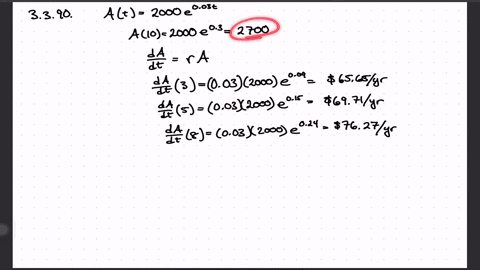 3.3.90. A(t) = 2000 e^0.03t
A(10) = 2000 e^0.3 = 2700
dA/dt = rA
dA/dt (3) = (0.03)(2000) e^0.09 = $65.65/yr
dA/dt (5) = (0.03)(2000) e^0.15 = $69.71/yr
dA/dt (8) = (0.03)(2000) e^0.24 = $76.27/yr